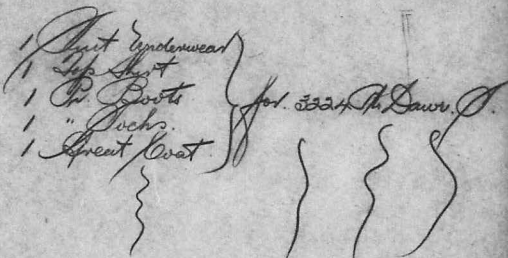 1 Suit Underwear
1 Top Shirt
1 Pr. Boots
1 " Socks.
1 Great Coat
for. 3224 Pte Dawe. S.